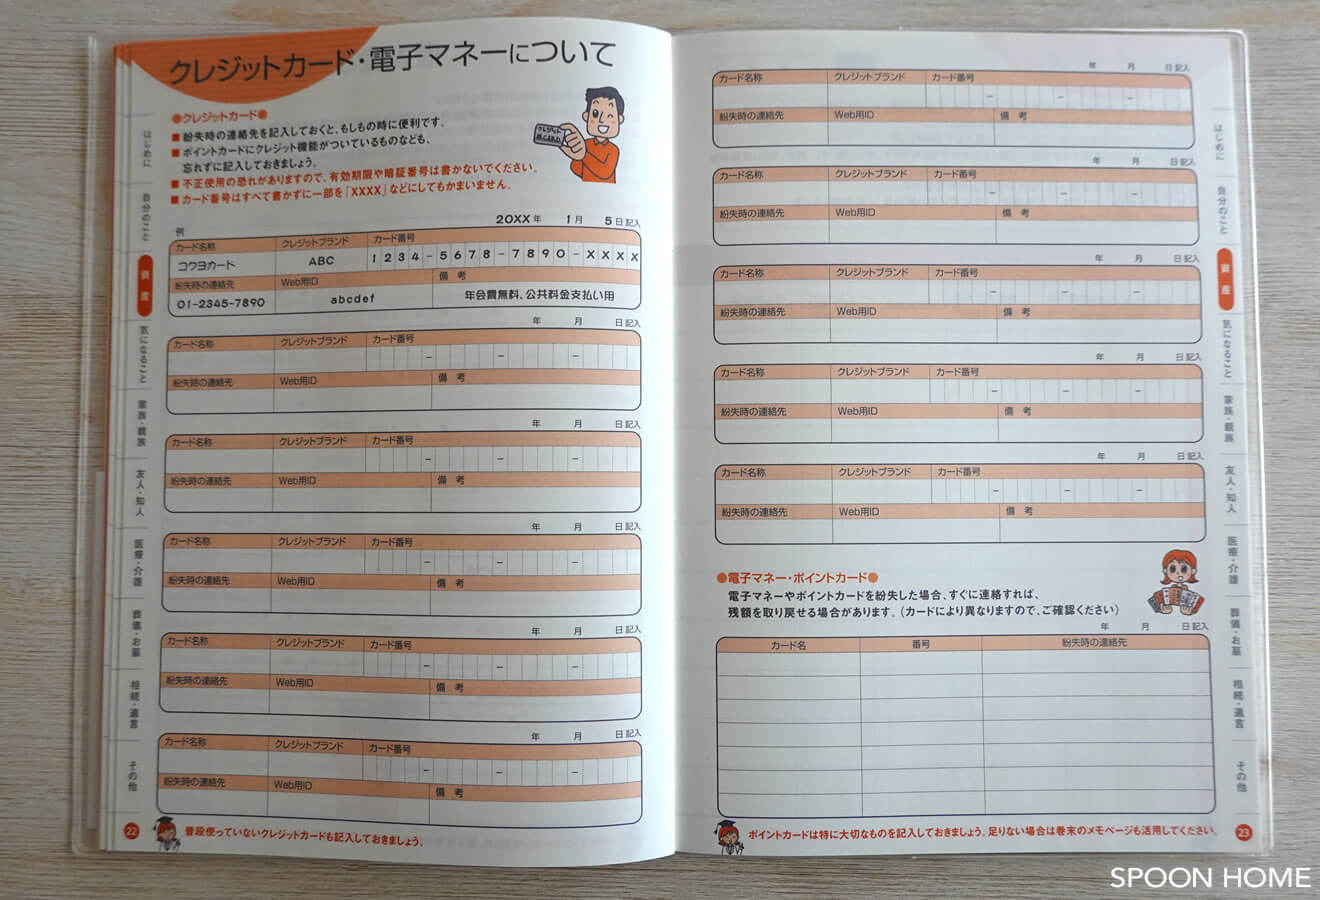 クレジットカード・電子マネーについて
●クレジットカード●
■ 紛失時の連絡先を記入しておくと、もしもの時に便利です。
■ ポイントカードにクレジット機能がついているものなども、
忘れずに記入しておきましょう。
■ 不正使用の恐れがありますので、有効期限や暗証番号は書かないでください。
■ カード番号はすべて書かずに一部を「XXXX」などにしてもかまいません。
クレジット
例
20XX 年 1 月 5 日 記入
カード名称 クレジットブランド カード番号
コクヨカード ABC 1234-5678-7890-XXXX
紛失時の連絡先 Web用ID 備 考
01-2345-7890 abcdef 年会費無料、公共料金支払い用
年 月 日 記入
カード名称 クレジットブランド カード番号
- - -
紛失時の連絡先 Web用ID 備 考
年 月 日 記入
カード名称 クレジットブランド カード番号
- - -
紛失時の連絡先 Web用ID 備 考
年 月 日 記入
カード名称 クレジットブランド カード番号
- - -
紛失時の連絡先 Web用ID 備 考
年 月 日 記入
カード名称 クレジットブランド カード番号
- - -
紛失時の連絡先 Web用ID 備 考
年 月 日 記入
カード名称 クレジットブランド カード番号
- - -
紛失時の連絡先 Web用ID 備 考
普段使っていないクレジットカードも記入しておきましょう。
22
はじめに
自分のこと
資産
気になること
家族・親族
友人・知人
医療・介護
葬儀・お墓
相続・遺言
その他
年 月 日 記入
カード名称 クレジットブランド カード番号
- - -
紛失時の連絡先 Web用ID 備 考
年 月 日 記入
カード名称 クレジットブランド カード番号
- - -
紛失時の連絡先 Web用ID 備 考
年 月 日 記入
カード名称 クレジットブランド カード番号
- - -
紛失時の連絡先 Web用ID 備 考
年 月 日 記入
カード名称 クレジットブランド カード番号
- - -
紛失時の連絡先 Web用ID 備 考
年 月 日 記入
カード名称 クレジットブランド カード番号
- - -
紛失時の連絡先 Web用ID 備 考
●電子マネー・ポイントカード●
電子マネーやポイントカードを紛失した場合、すぐに連絡すれば、
残額を取り戻せる場合があります。(カードにより異なりますので、ご確認ください)
年 月 日 記入
カード名 番号 紛失時の連絡先
ポイントカードは特に大切なものを記入しておきましょう。足りない場合は巻末のメモページも活用してください。
23
はじめに
自分のこと
資産
気になること
家族・親族
友人・知人
医療・介護
葬儀・お墓
相続・遺言
その他
SPOON HOME